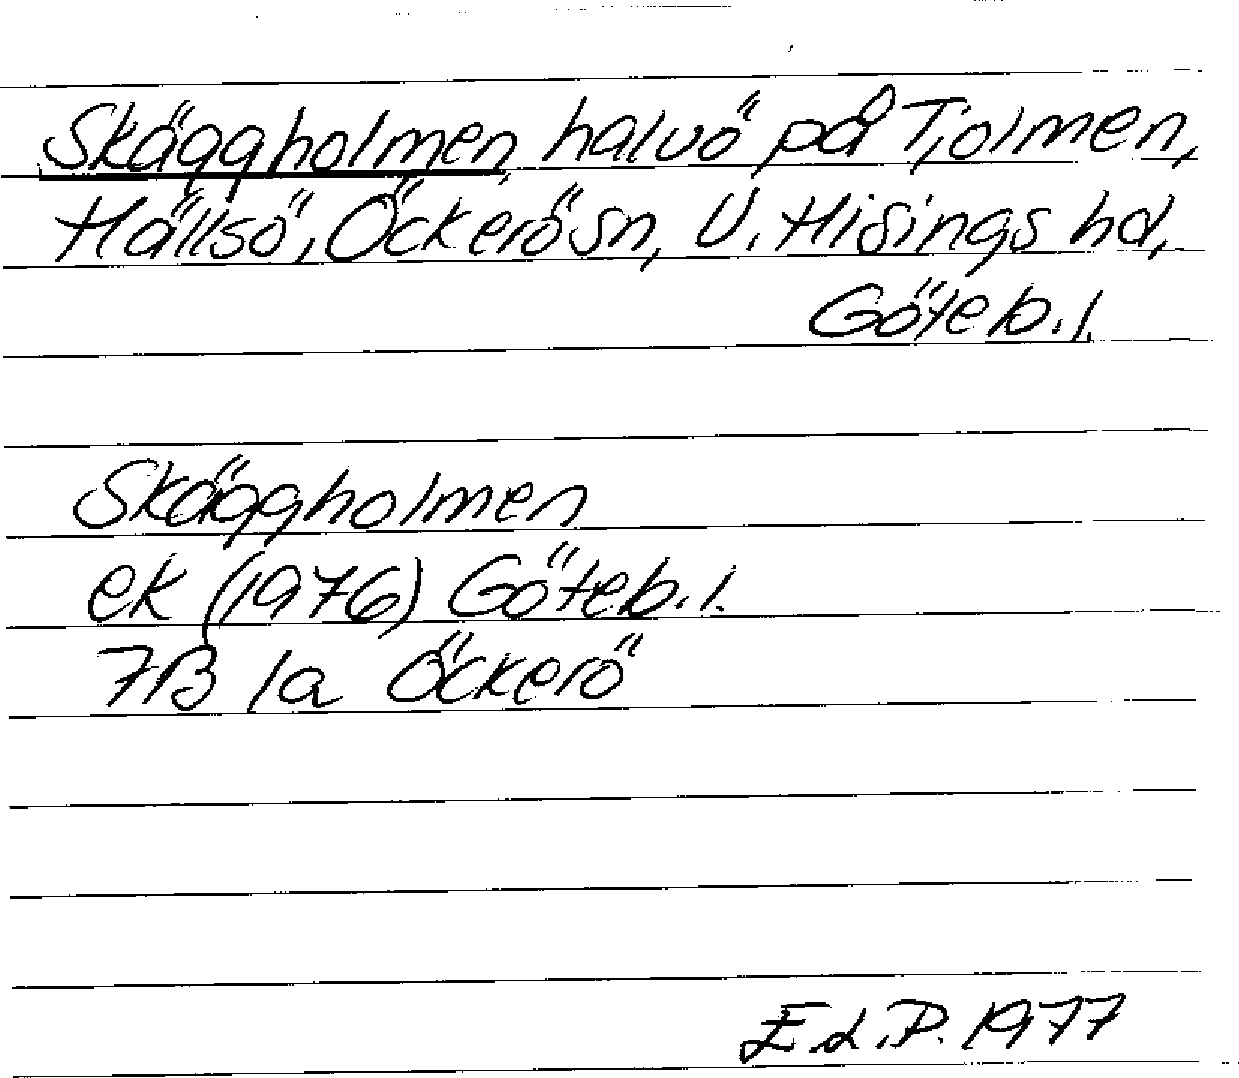 Skäggholmen, halvö på Tjolmen,
Hällsö, Öckerö sn, V. Hisings hd,
Göteb. l.
Skäggholmen
ek (1976) Göteb. l.
7B 1a Öckerö
E.L.P. 1977